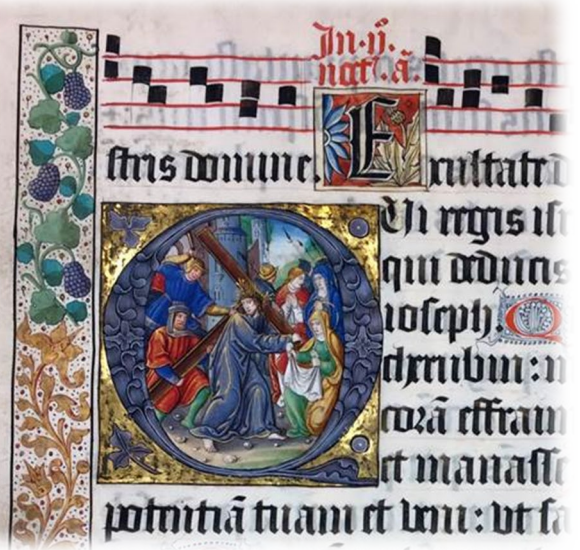 In .ij.
noct. ā.
stris domine. Exultate d
Qui regis isr
qui deducis
ioseph. Q
cherubim: m
corā effraim
et manasse
potentiā tuam et veni: vt sa